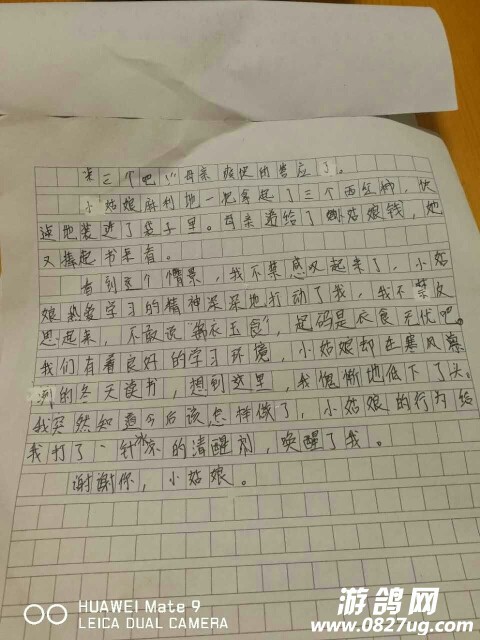 来三个吧！”母亲爽快的答应了。
小姑娘麻利地一把拿起了三个西红柿，快
速地装进了袋子里。母亲递给了小姑娘钱，她
又捧起书来看。
看到这个情景，我不禁感叹起来了，小姑
娘热爱学习的精神深深地打动了我，我不禁反
思起来，不敢说“锦衣玉食”，起码是衣食无忧吧。
我们有着良好的学习环境，小姑娘却在寒风凛
冽的冬天读书，想到这里，我愧惭地低下了头，
我突然知道今后该怎样做了，小姑娘的行为给
我打了一针冰凉的清醒剂，唤醒了我。
谢谢你，小姑娘。
HUAWEI Mate 9
LEICA DUAL CAMERA
游鸽网
www.0827ug.com